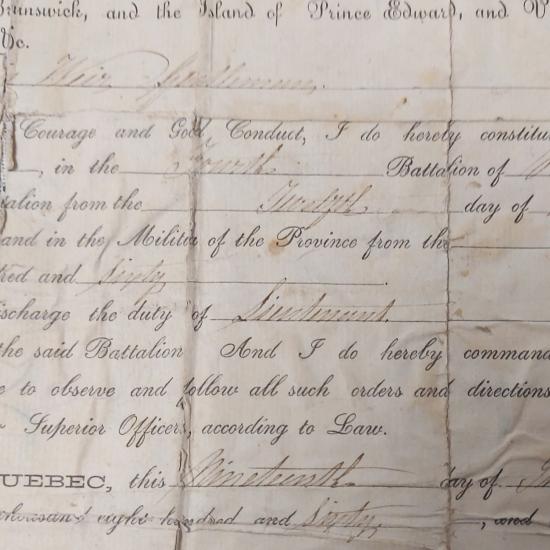 Brunswick, and the Island of Prince Edward, and V
&c.
Weir Gentleman,
Courage and Good Conduct, I do hereby constitu
, in the Fourth Battalion of
alion from the Twelfth day of
and in the Militia of the Province from the
red and sixty .
ischarge the duty of Lieutenant
the said Battalion And I do hereby command
e to observe and follow all such orders and directions
r Superior Officers, according to Law.
UEBEC, this Nineteenth day of
thousand eight hundred and sixty, and